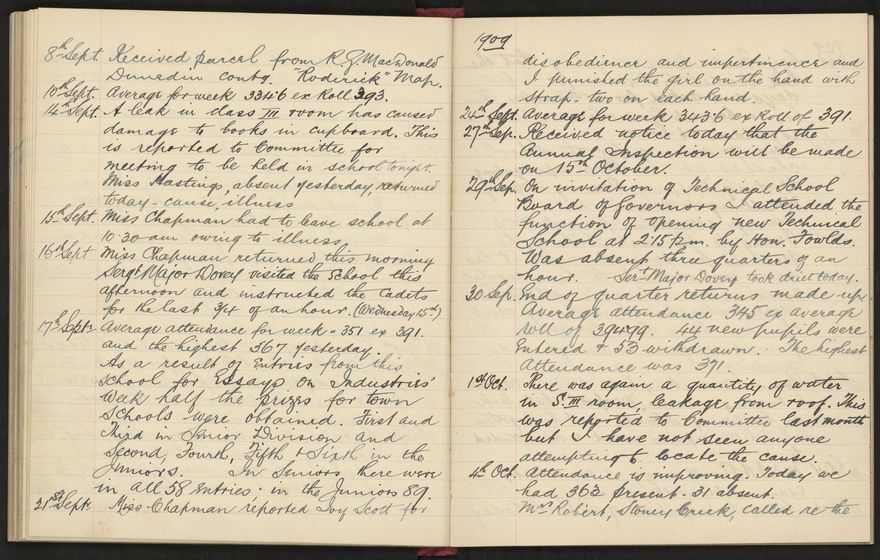 8th Sept. Received parcel from R.G. MacDonald
Dunedin contg. "Roderick" Map.
10th Sept. Average for week 334.6 ex Roll 393.
14th Sept. A leak in class III room has caused
damage to books in cupboard. This
is reported to Committee for
meeting to be held in school tonight.
Miss Hastings, absent yesterday, returned
today - cause, illness
15th Sept. Miss Chapman had to leave school at
10.30 am owing to illness
16th Sept Miss Chapman returned this morning
Sergt Major Dovey visited the School this
afternoon and instructed the Cadets
for the last 3/4 of an hour. (Wednesday 15th)
17th Sept. Average attendance for week = 351 ex 391.
and the highest 367 yesterday.
As a result of Entries from this
School for Essays on Industries'
Week half the prizes for town
Schools were obtained. First and
Third in Senior Division and
Second, Fourth, Fifth & Sixth in the
Juniors. In Seniors there were
in all 58 Entries, in the Juniors 89.
21st Sept. Miss Chapman reported Ivy Scott for
1909
disobedience and impertinence and
I punished the girl on the hand with
strap - two on each hand.
24th Sept. Average for week 343.6 ex Roll of 391.
27th Sep. Received notice today that the
Annual Inspection will be made
on 15th October.
29th Sep. On invitation of Technical School
Board of Governors I attended the
function of opening new Technical
School at 2.15 p.m. by Hon. Fowlds.
Was absent three quarters of an
hour. Sergt Major Dovey took drill today.
30 Sep. End of quarter returns made up.
Average attendance 345 ex average
roll of 394.49. 44 new pupils were
Entered & 53 withdrawn. The highest
Attendance was 371.
1st Oct. There was again a quantity of water
in S. III room, leakage from roof. This
was reported to Committee last month
but I have not seen anyone
attempting to locate the cause.
4th Oct. Attendance is improving. Today we
had 362 present - 31 absent.
Mrs Robert, Stoney Creek, called re the